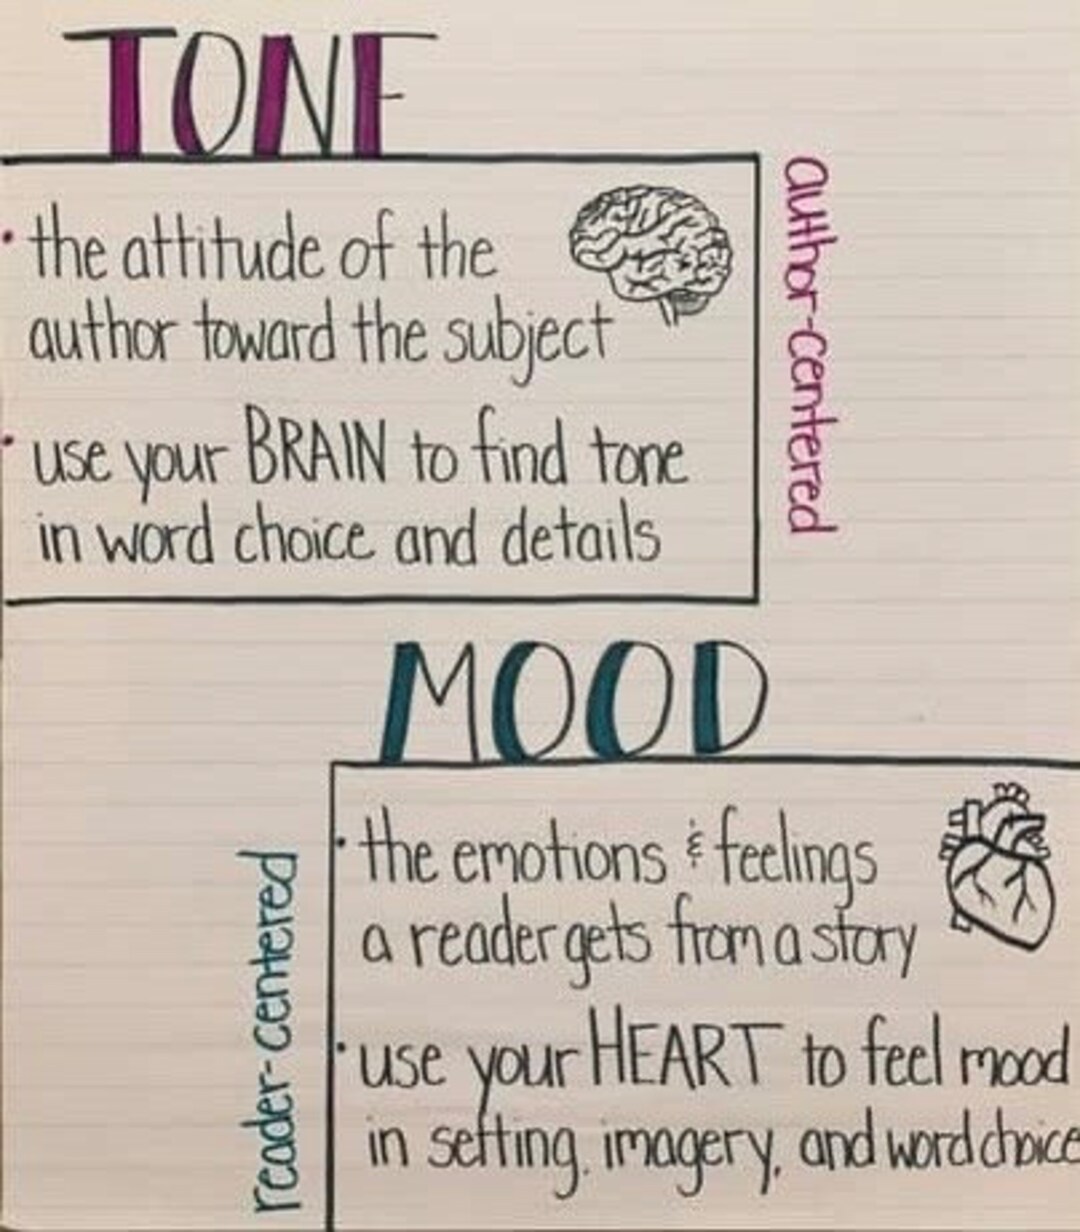 TONE
• the attitude of the
author toward the subject
• use your BRAIN to find tone
in word choice and details
author-centered
MOOD
reader-centered
• the emotions & feelings
a reader gets from a story
• use your HEART to feel mood
in setting, imagery, and word choice